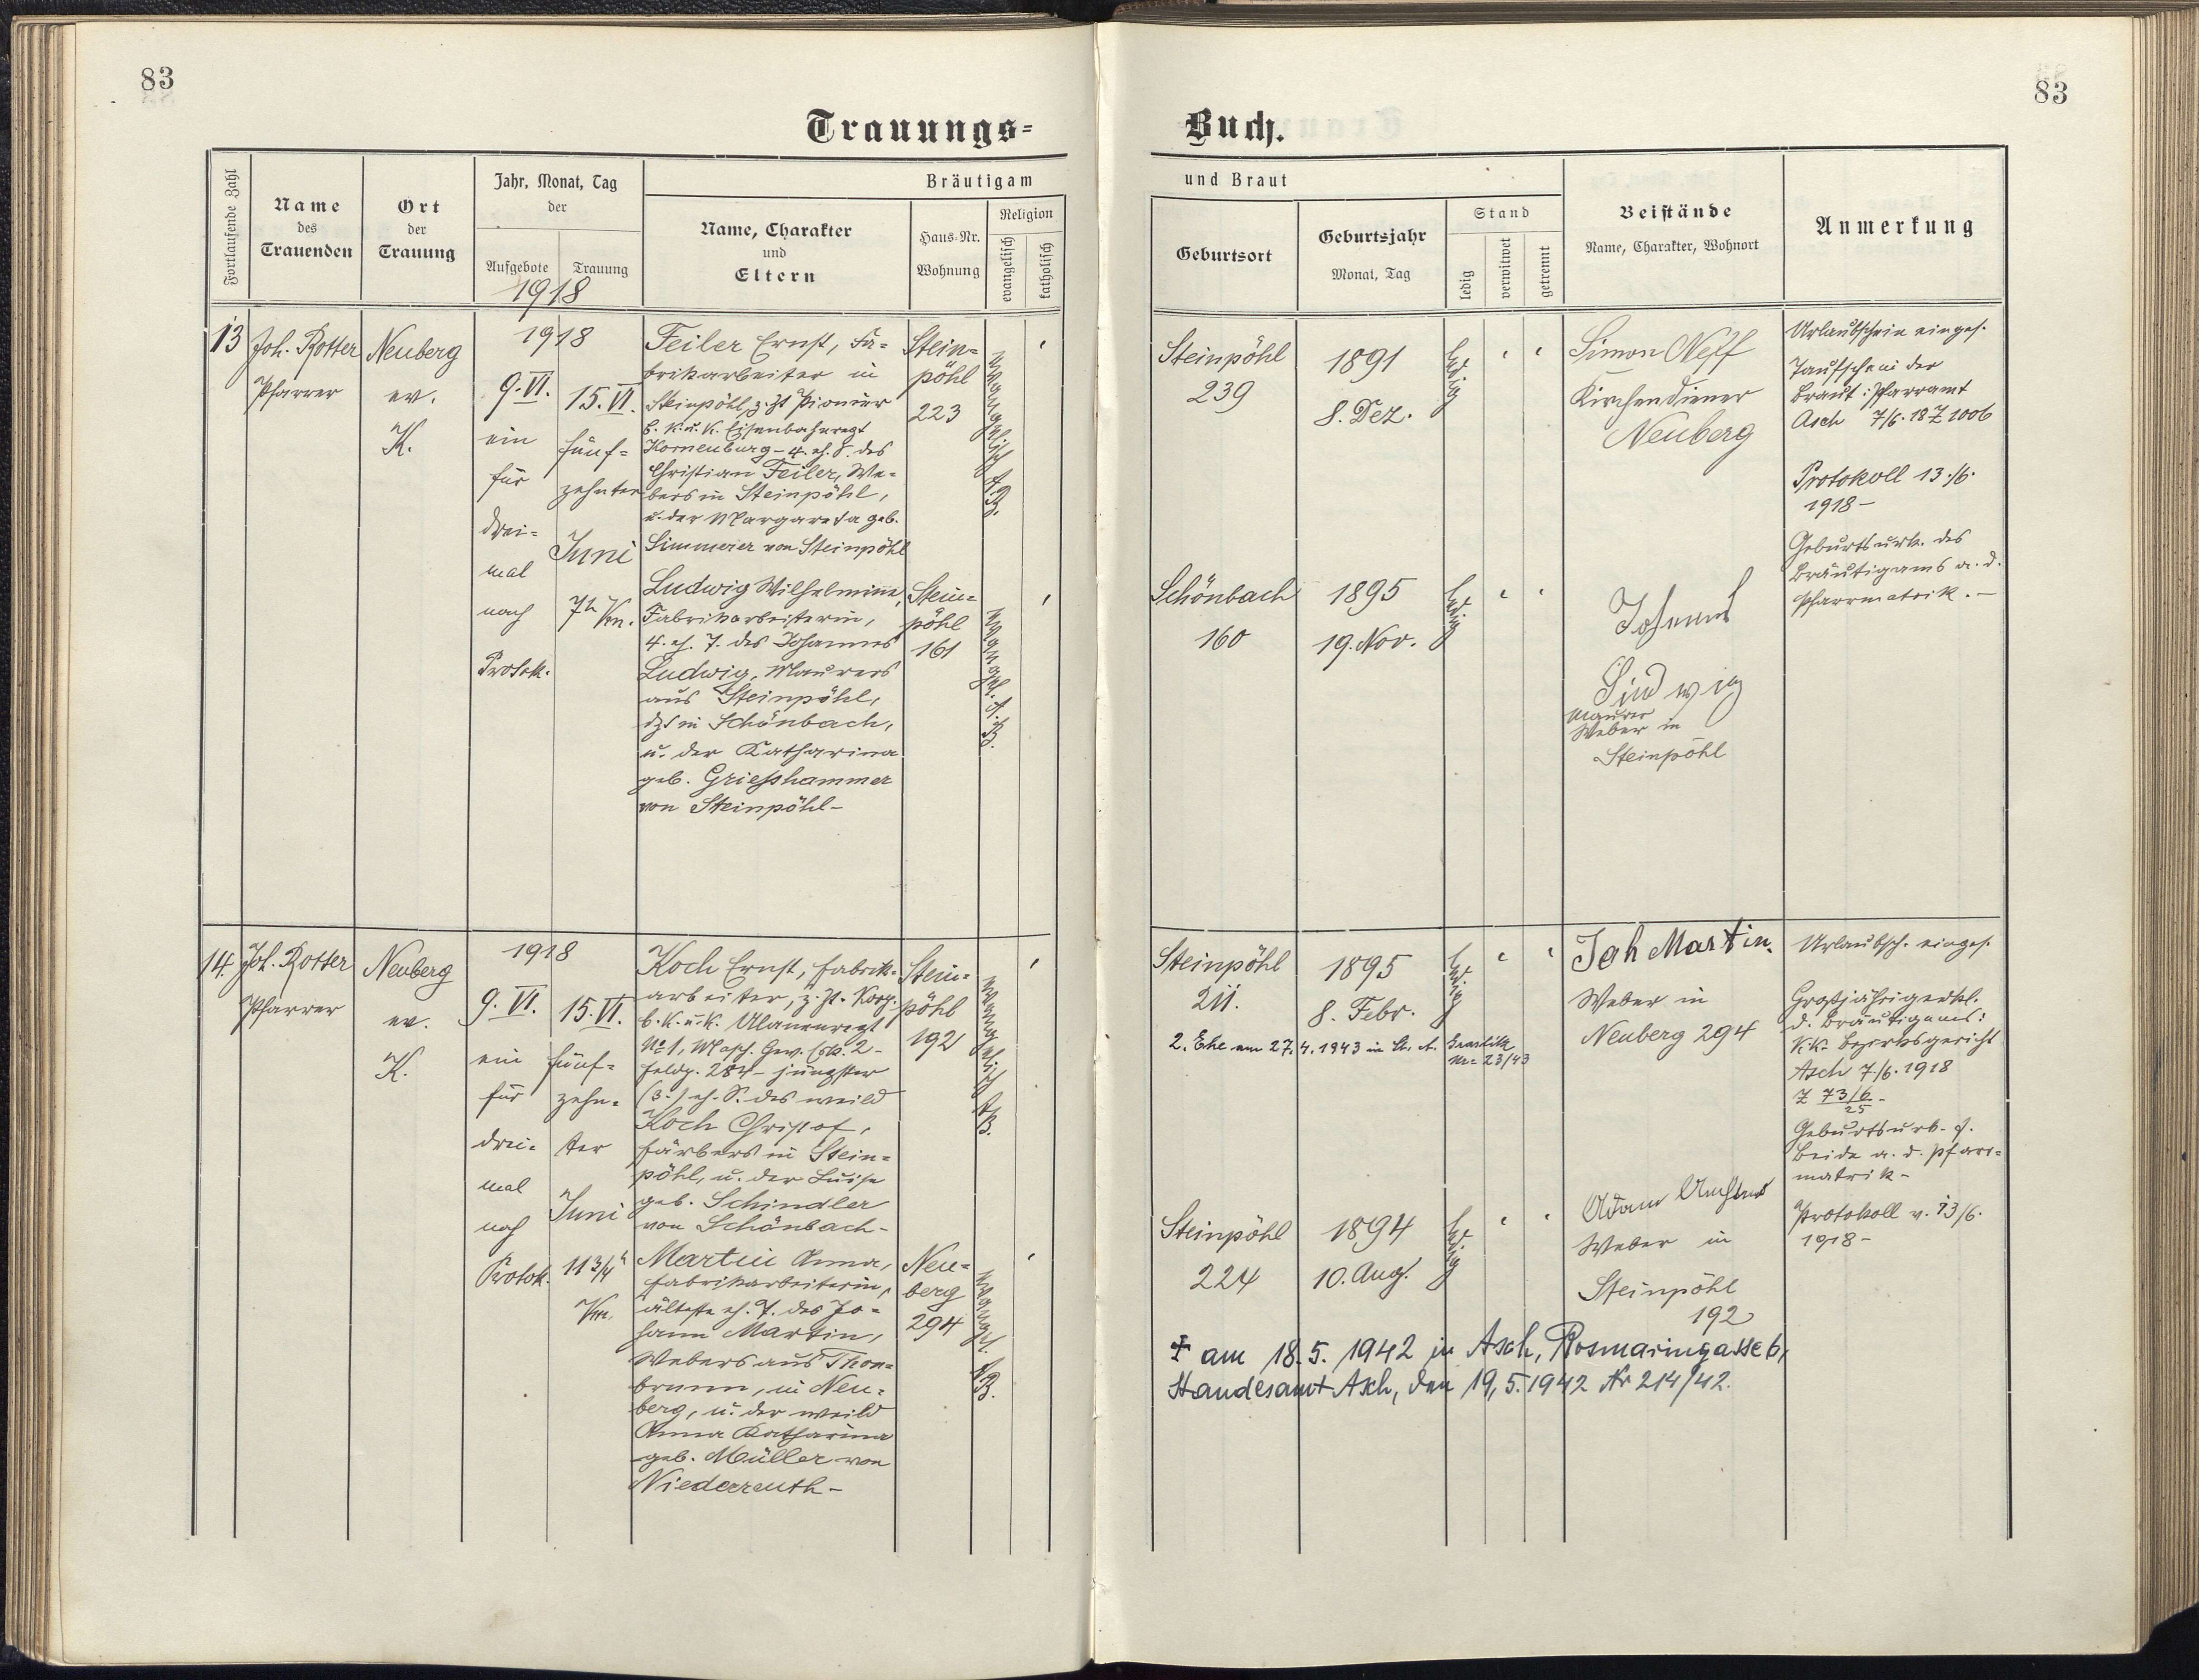 83
83
Trauungs=
Buch.
Fortlaufende Zahl
Name
des
Trauenden
Ort
der
Trauung
Jahr, Monat, Tag
der
Aufgebote
Trauung
1918
Bräutigam
Name, Charakter
und
Eltern
Haus=Nr.
Wohnung
Religion
evangelisch
katholisch
und Braut
Geburtsort
Geburtsjahr
Monat, Tag
Stand
ledig
verwitwet
getrennt
Beistände
Name, Charakter, Wohnort
Anmerkung
13
Joh. Rotter
Pfarrer
Neuberg
ev.
K.
1918
9. VI.
ein
für
drei=
mal
nach
Protok.
15. VI.
fünf=
zehnter
Juni
7h Vm.
Feiler Ernst, Fa=
brikarbeiter in
Steinpöhl, z. Zt Pionier
b. k. u. k. Eisenbahnregt
Korneuburg - 4. eh. S. des
Christian Feiler, We=
bers in Steinpöhl,
u. der Margareta geb.
Simmerer von Steinpöhl
Stein=
pöhl
223
evangelisch A. B.
Ludwig Wilhelmine,
Fabrikarbeiterin,
4. eh. T. des Johannes
Ludwig, Maurers
aus Steinpöhl,
dzt in Schönbach,
u. der Katharina
geb. Griesshammer
von Steinpöhl -
Stein=
pöhl
161
evangel. A. B.
Steinpöhl
239
1891
8. Dez.
ledig
Schönbach
160
1895
19. Nov.
ledig
Simon Neff
Kirchendiener
Neuberg
Johann
Ludwig
Maurer
Weber in
Steinpöhl
Urlaubschein einges.
Taufschein der
Braut: Pfarramt
Asch 7/6. 18 Z 1006
Protokoll 13./6.
1918 -
Geburtsurk. des
Bräutigams a. d.
Pfarrmatrik. -
14.
Joh. Rotter
Pfarrer
Neuberg
ev.
K.
1918
9. VI.
ein
für
drei=
mal
nach
Protok.
15. VI.
fünf=
zehn=
ter
Juni
11 3/4 h
Vm.
Koch Ernst, Fabrik=
arbeiter, z. Zt. Korp.
b. k. u. k. Ulanenregt
No 1, Masch. Gew. Esk. 2 -
Feldp. 284 - jüngster
(3.) eh. S. des weild
Koch Christof,
Färbers in Stein=
pöhl, u. der Luise
geb. Schindler
von Schönbach -
Stein=
pöhl
192
evangelisch A. B.
Martin Anna,
Fabrikarbeiterin,
älteste eh. T. des Jo=
hann Martin,
Webers aus Thon=
brunn, in Neu=
berg, u. der weild
Anna Katharina
geb. Müller von
Niederreuth -
Neu=
berg
294
evangel. A. B.
Steinpöhl
211.
1895
8. Febr.
ledig
2. Ehe am 27. 4. 1943 in St. A.
Nr. 23/43
Steinpöhl
224
1894
10. Aug.
ledig
Joh Martin.
Weber in
Neuberg 294
Adam
Weber in
Steinpöhl
192
Urlaubsch. einges.
Grossjährigerkl.
d. Bräutigams:
k. k. Bezirksgericht
Asch 7./6. 1918
Z 73/6
25
Geburtsurk. f.
Beide a. d. Pfarr=
matrik -
Protokoll v. 13/6.
1918 -
‡ am 18. 5. 1942 in Asch, Rosmaringasse 6,
Standesamt Asch, den 19, 5. 1942 Nr 214/42.